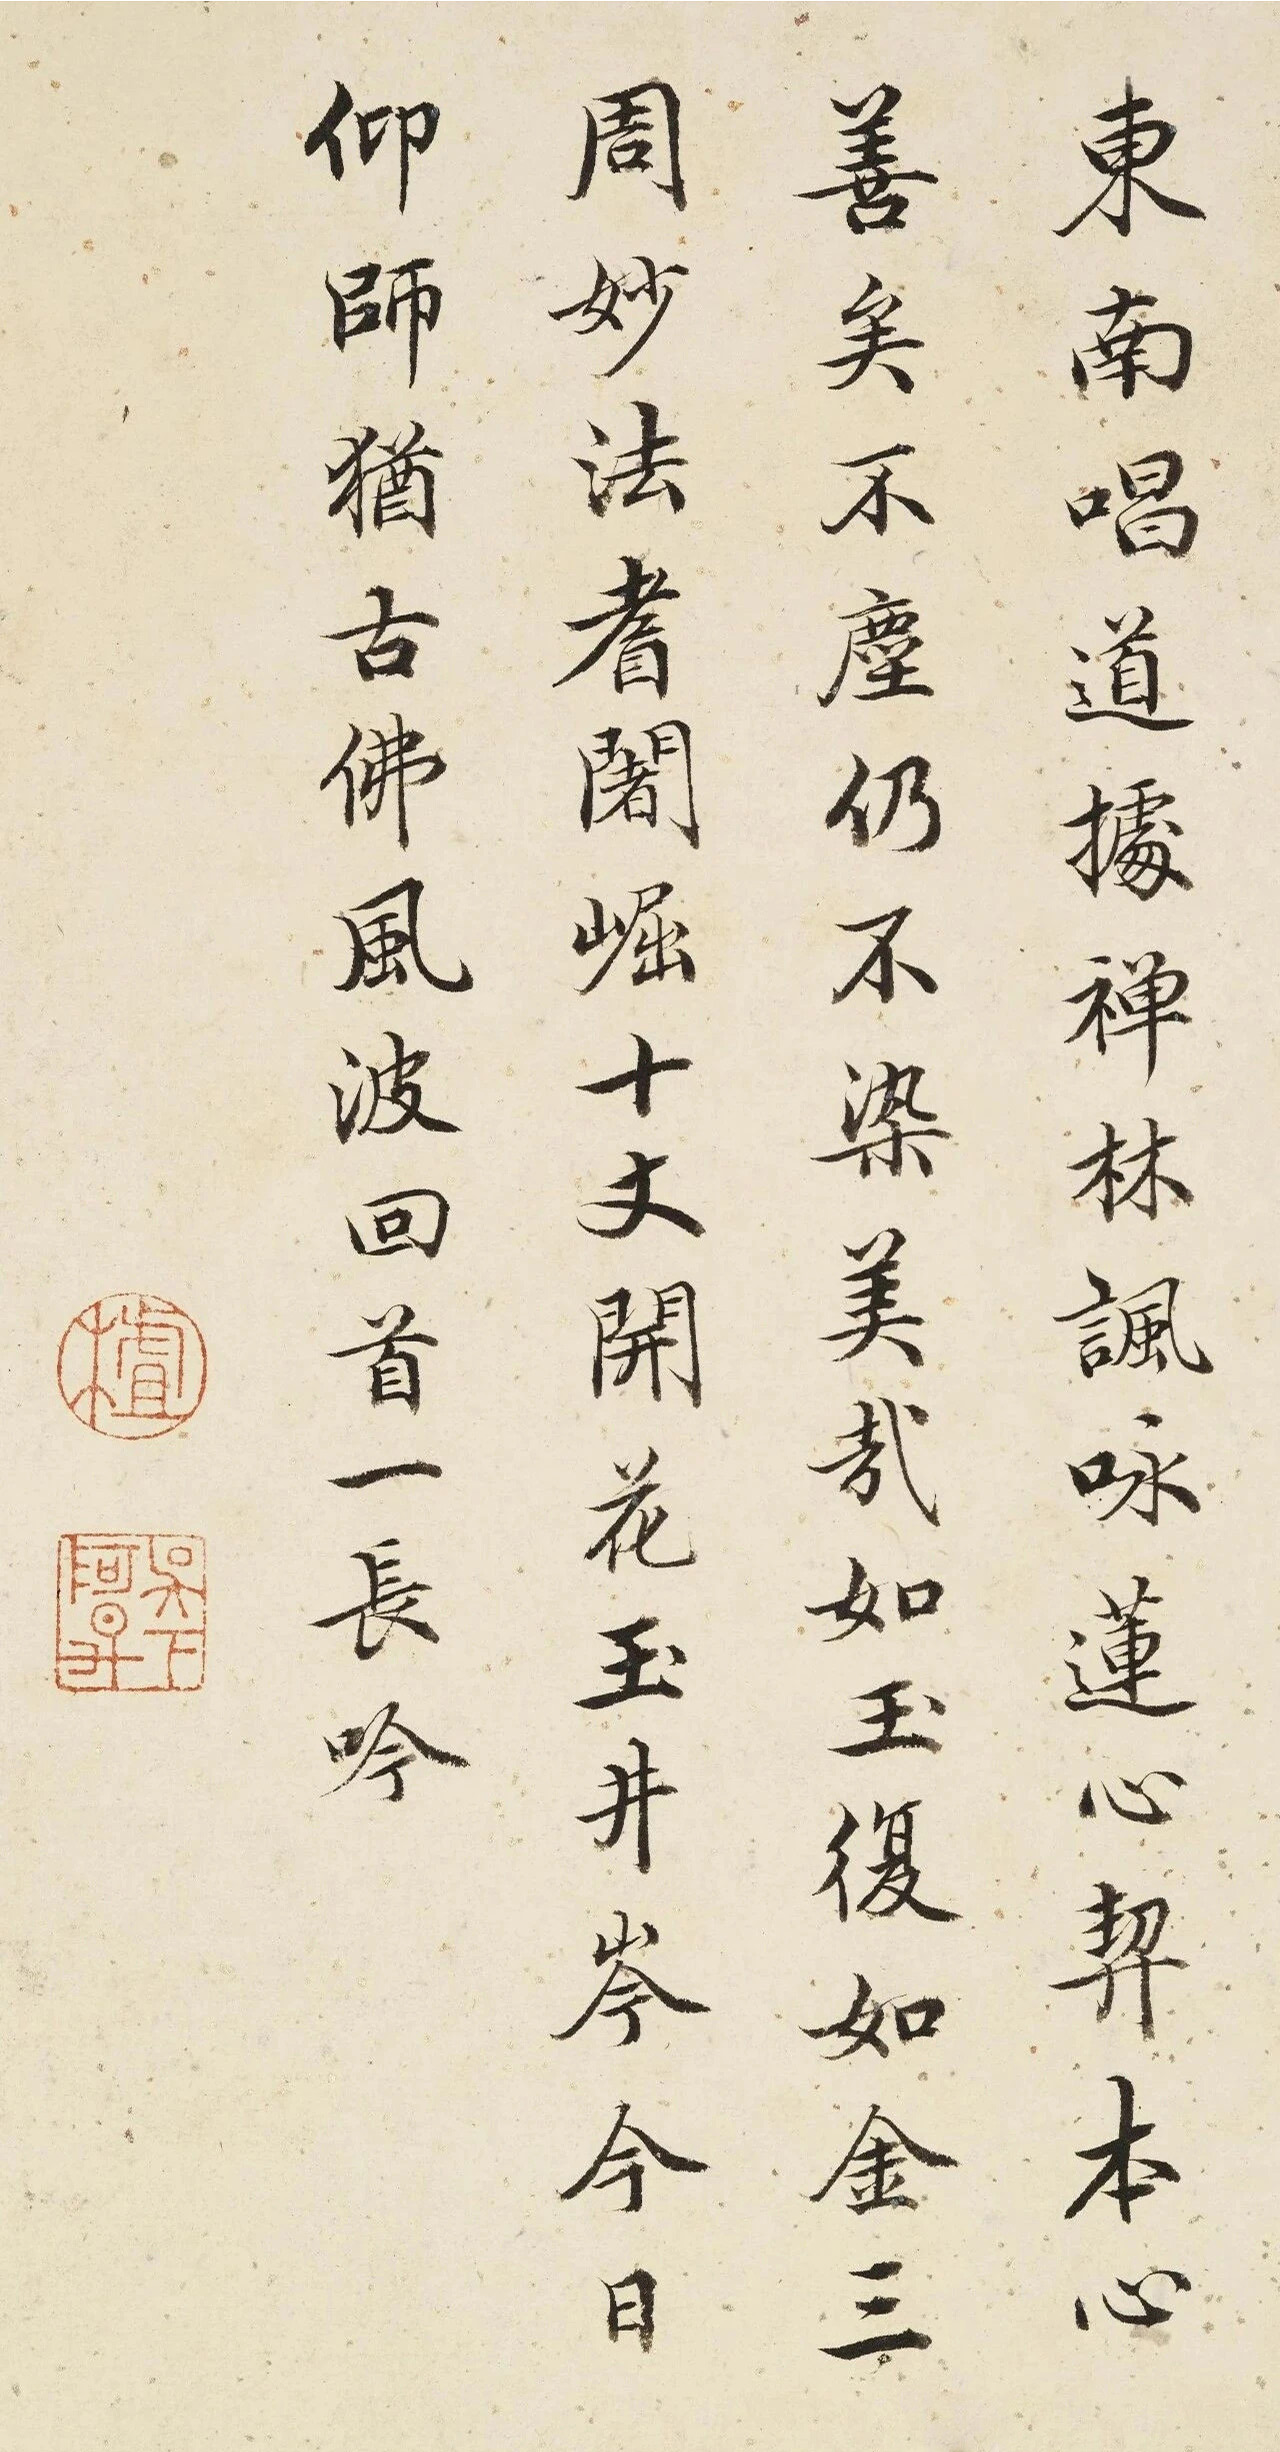 東南唱道據禅林諷咏蓮心契本心
善矣不塵仍不染美哉如玉復如金三
周妙法耆闍崛十丈開花玉井岑今日
仰師猶古佛風波回首一長吟
樝
吳下阿覃